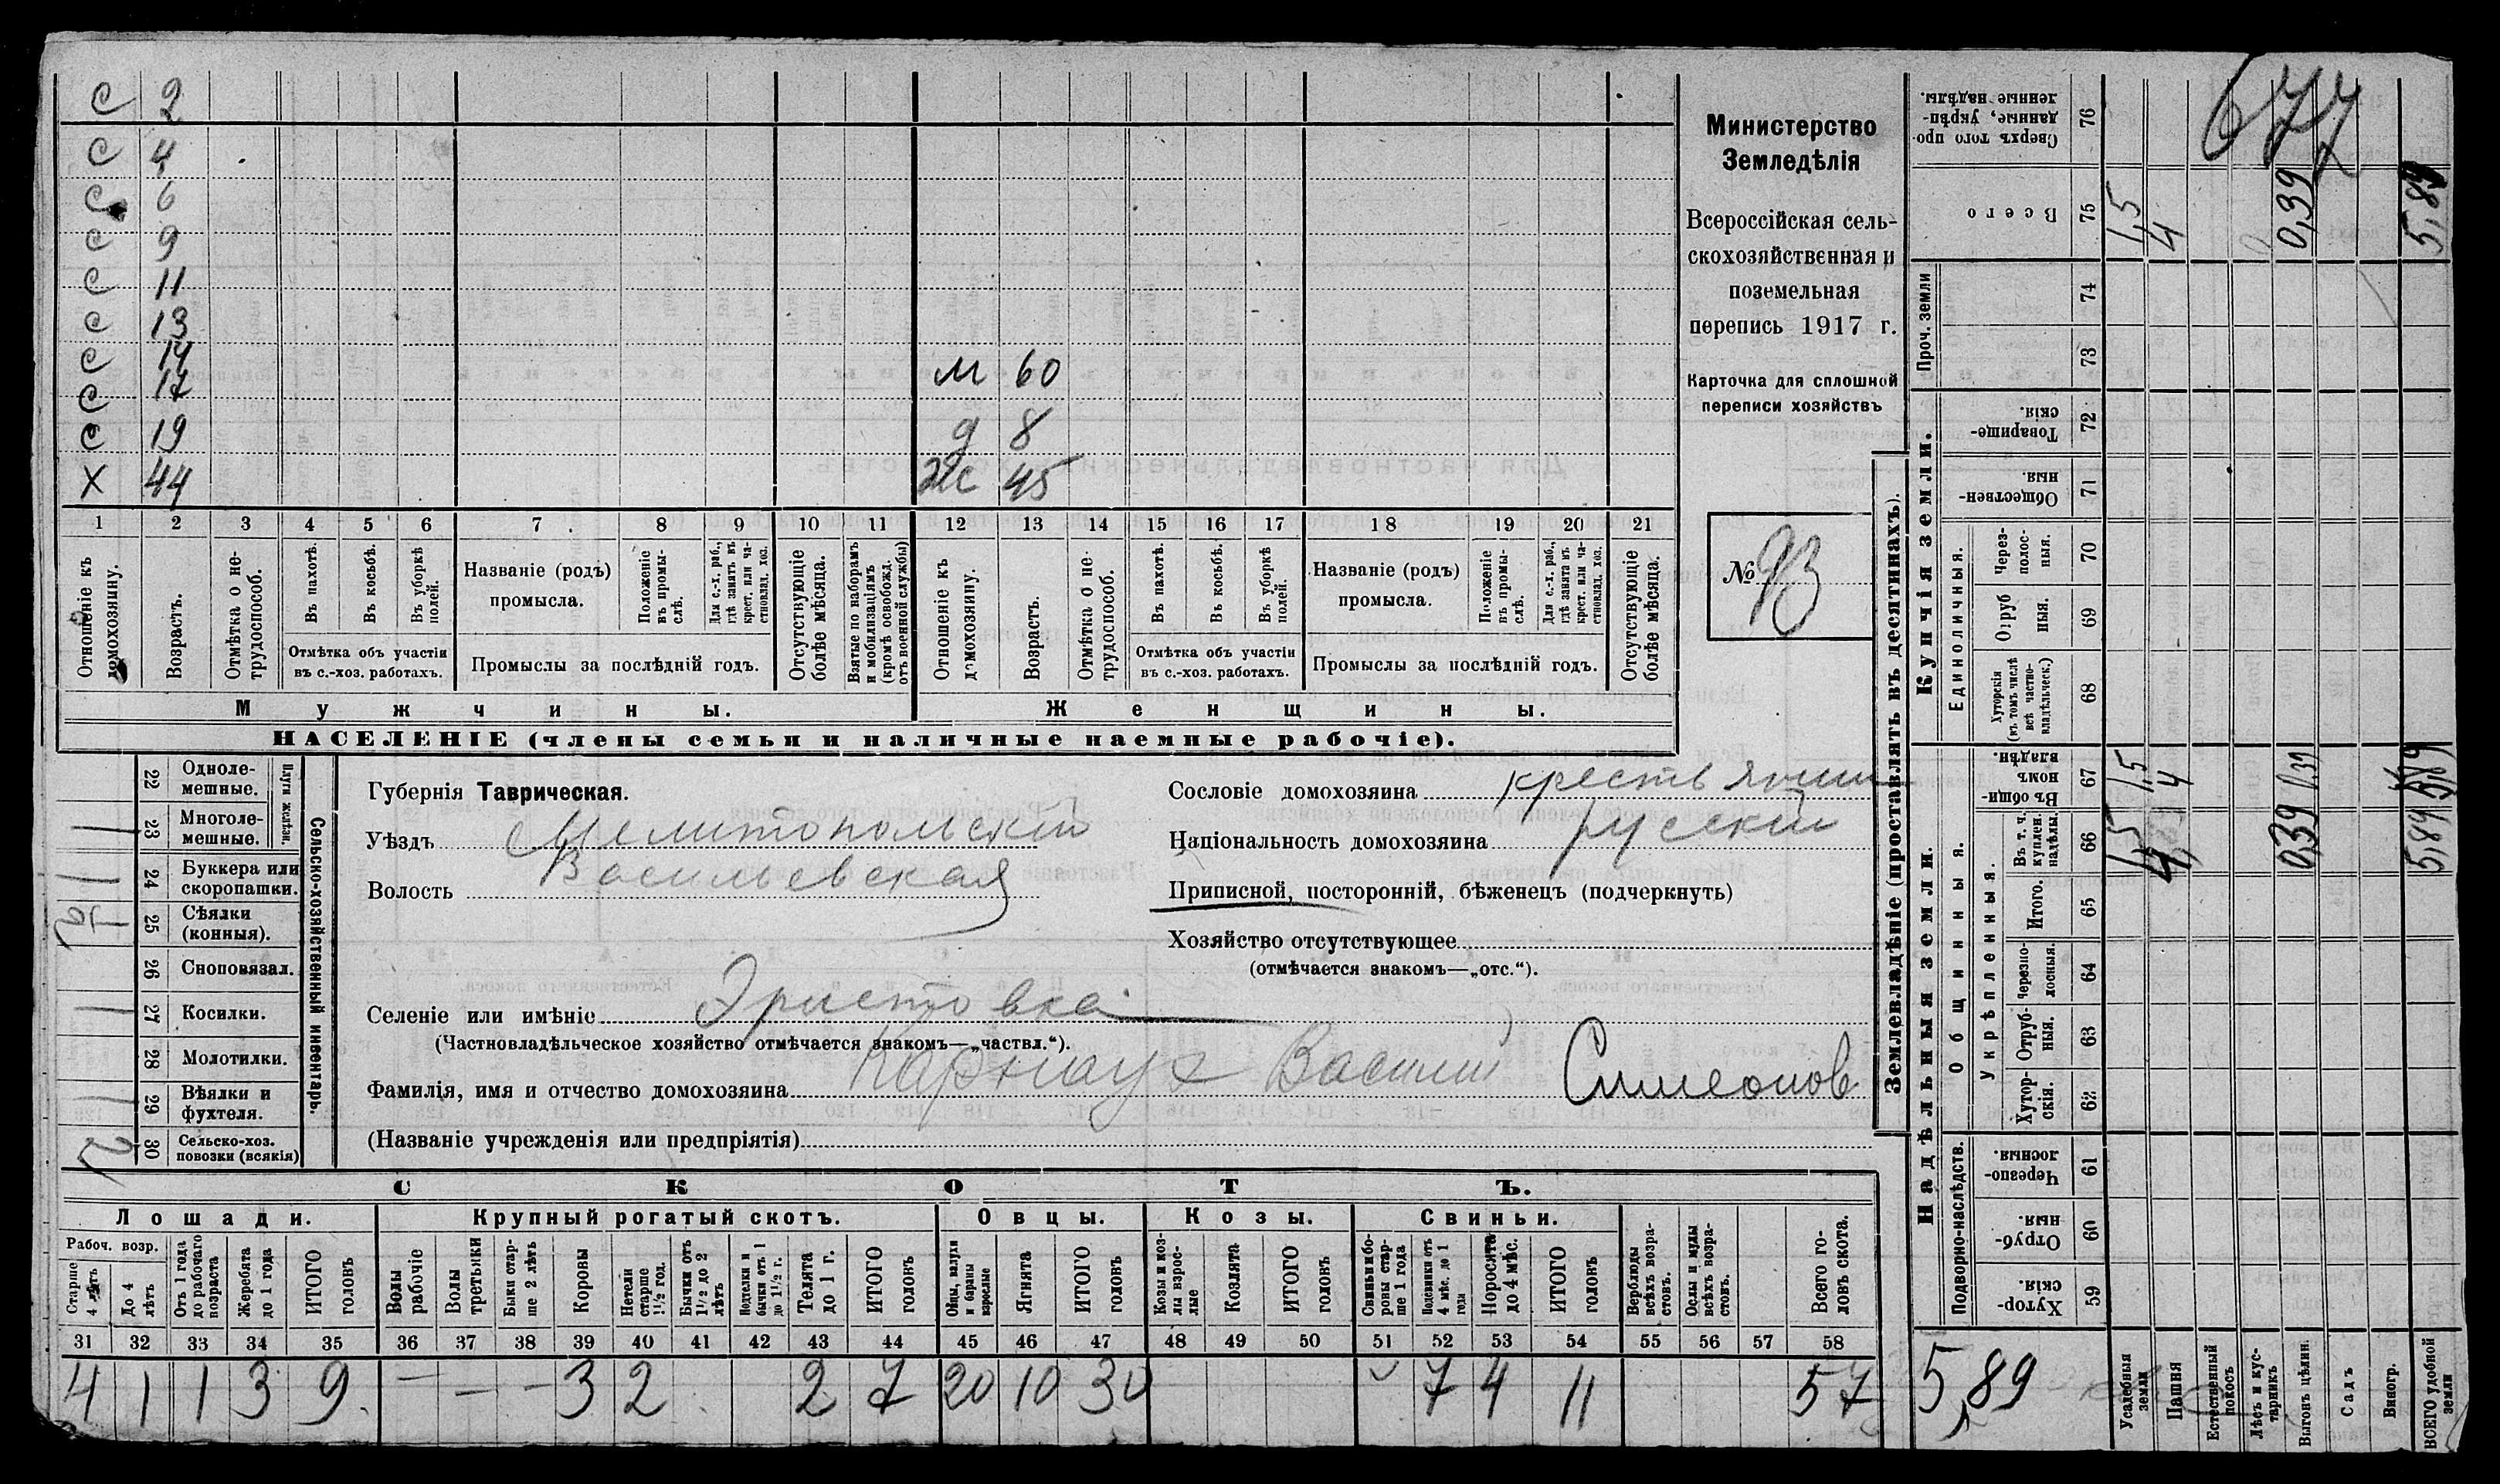 С 2
С 4
С 6
С 9
С 11
С 13
С 14
С 17
С 19
Х 44
М 60
д 8
Ж 45
1 2 3 4 5 6 7 8 9 10 11 12 13 14 15 16 17 18 19 20 21
Отношеніе къ домохозяину.
Возрастъ.
Отмѣтка о не-трудоспособ.
Въ пахотѣ.
Въ косьбѣ.
Въ уборкѣ полей.
Отмѣтка объ участіи
въ с.-хоз. работахъ.
Названіе (родъ)
промысла.
Положеніе въ промы-слѣ.
Для с.-х. раб., гдѣ занятъ въ крест. или ча-стновлад. хоз.
Промыслы за послѣдній годъ.
Отсутствующіе болѣе мѣсяца.
Взятые по наборамъ и мобилизаціямъ (кромѣ освобожд. отъ военной службы)
Отношеніе къ домохозяину.
Возрастъ.
Отмѣтка о не-трудоспособ.
Въ пахотѣ.
Въ косьбѣ.
Въ уборкѣ полей.
Отмѣтка объ участіи
въ с.-хоз. работахъ.
Названіе (родъ)
промысла.
Положеніе въ промы-слѣ.
Для с.-х. раб., гдѣ занята въ крест. или ча-стновлад. хоз.
Промыслы за послѣдній годъ.
Отсутствующіе болѣе мѣсяца.
Мужчины.
Женщины.
НАСЕЛЕНІЕ (члены семьи и наличные наемные рабочіе).
Министерство
Земледѣлія
Всероссійская сель-
скохозяйственная и
поземельная
перепись 1917 г.
Карточка для сплошной
переписи хозяйствъ
№ 93
22 Однолемешные.
23 Многолемешные.
Плуги желѣзн.
24 Буккера или скоропашки.
25 Сѣялки (конныя).
26 Сноповязал.
27 Косилки.
28 Молотилки.
29 Вѣялки и фухтеля.
30 Сельско-хоз. повозки (всякія)
Сельско-хозяйственный инвентарь.
Губернія Таврическая.
Уѣздъ Мелитопольскій
Волость Васильевская
Селеніе или имѣніе Эристовка
(Частновладѣльческое хозяйство отмѣчается знакомъ—„частвл.“).
Фамилія, имя и отчество домохозяина Карнаух Василий Симеонов
(Названіе учрежденія или предпріятія)
Сословіе домохозяина крестьянин
Національность домохозяина русский
Приписной, посторонній, бѣженецъ (подчеркнуть)
Хозяйство отсутствующее
(отмѣчается знакомъ—„отс.“).
СКОТЪ.
Лошади. Крупный рогатый скотъ. Овцы. Козы. Свиньи.
Рабоч. возр.
Старше 4 лѣтъ
До 4 лѣтъ
Отъ 1 года до рабочаго возраста
Жеребята до 1 года
ИТОГО головъ
Волы рабочіе
Волы третьяки
Быки стар-ше 2 лѣтъ
Коровы
Нетели старше 1½ год.
Бычки отъ 1½ до 2 лѣтъ
Подтелки и бычки отъ 1 до 1½ г.
Телята до 1 г.
ИТОГО головъ
Овцы, валухи и бараны взрослые
Ягнята
ИТОГО головъ
Козы и коз-лы взрос-лые
Козлята
ИТОГО головъ
Свиньи и бо-ровы стар-ше 1 года
Подсвинки отъ 4 мѣс. до 1 года
Поросята до 4 мѣс.
ИТОГО головъ
Верблюды всѣхъ возра-стовъ.
Ослы и мулы всѣхъ возра-стовъ.
Всего го-ловъ скота.
31 32 33 34 35 36 37 38 39 40 41 42 43 44 45 46 47 48 49 50 51 52 53 54 55 56 57 58
4 1 1 3 9 — — — 3 2 2 7 20 10 30 7 4 11 57
Землевладѣніе (проставлять въ десятинахъ).
Купчія земли.
Надѣльныя земли.
677
Сверхъ того про-данные, укрѣп-ленные надѣлы. 76
Всего 75
1,5 4 0,39 5,89
Проч. земли
74
73
Товарище-скія. 72
Обществен-ныя. 71
Единоличныя.
Через-полос-ныя. 70
Отруб ныя. 69
Хуторскія (въ томъ числѣ всѣ частно-владѣльческ.) 68
Въ общин-номъ владѣн. 67
1,5 4 0,39 5,89
Общинныя.
Укрѣпленныя.
Въ т. ч. куплен. надѣлы. 66
1,5 4 0,39 5,89
Итого. 65
Черезпо-лосныя. 64
Отруб-ныя. 63
Хутор-скія. 62
Подворно-наслѣдств.
Черезпо-лосныя. 61
Отруб-ныя. 60
Хутор-скія. 59
5,89
Усадебныя земли
Пашня
Естественный покосъ
Лѣсъ и кус-тарникъ
Выгонъ цѣлин.
Садъ
Виногр.
ВСЕГО удобной земли